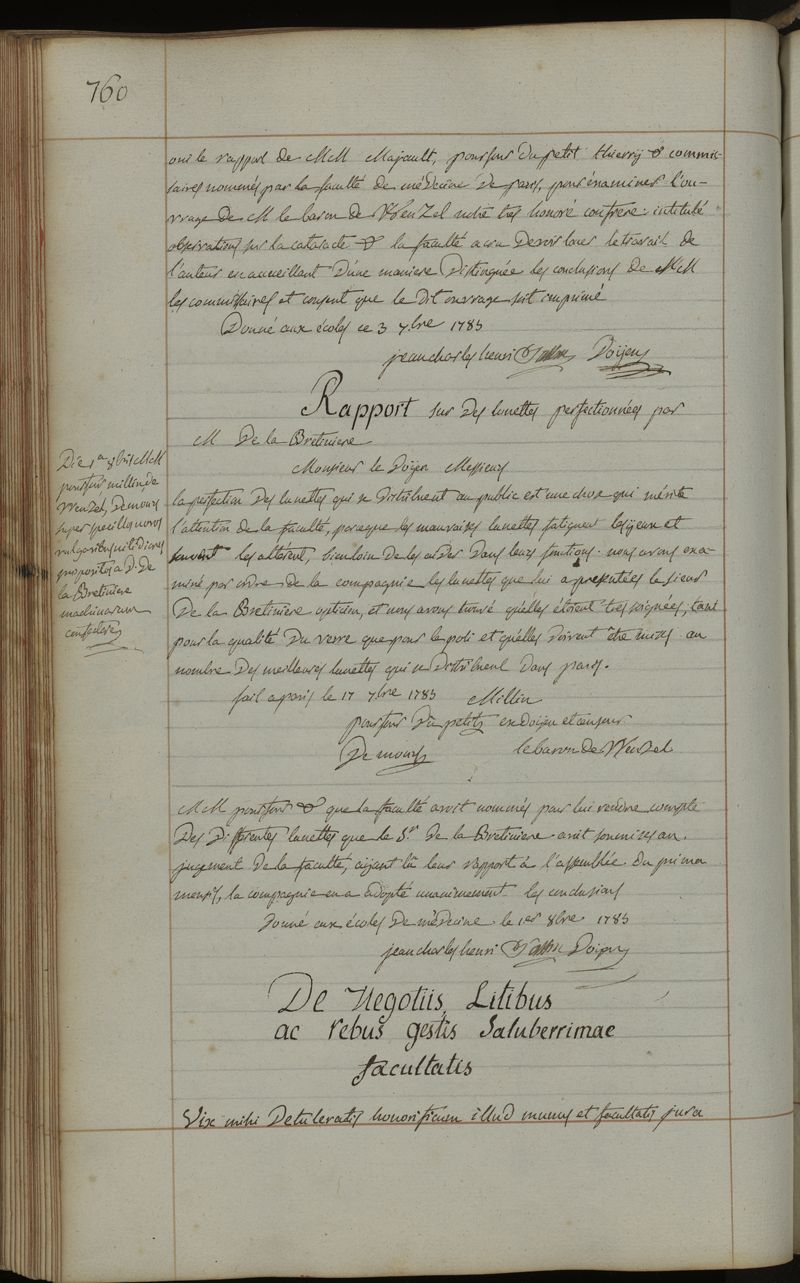 760
oui le rapport de MM Majault, pourfour Du petit thierry & commis-
saires nommés par la faculté de médecine De paris, pour éxaminer l'ou-
vrage de M le baron de WenZel notre très honoré confrere intitulé
observations sur la cataracte & la faculté a cru Devoir louer le travail de
l'auteur en accueillant D'une maniere Distinguée les conclusions de MM
les commissaires et consent que le Dit ouvrage soit imprimé
Donné aux écoles ce 3 7bre 1785
jean charles henri Doijen
Rapport sur Des lunettes perfectionnées par
M De la Bretiniere
Monsieur le Doijen Messieurs
la perfection Des lunettes qui se distribuent au public est une chose qui mérite
l'attention de la faculté, parceque les mauvaises lunettes fatiguent les ijeux et
souvent les altèrent, bien loin de les aider Dans leurs fonctions. nous avons exa-
miné par ordre de la compagnie les lunettes que lui a presentées le sieur
De la Bretiniere opticien, et nous avons trouvé qu'elles étoient très soignées, tant
pour la qualité Du verre que pour le poli et qu'elles doivent être mises au
nombre Des meilleures lunettes qui se distribuent Dans paris.
fait a paris le 17 7bre 1785 Millin
pourfour Du petit ex doijen et censeur
Demours le baron de Wenzel
Die 1a 8bris MM
pourfour millin de
Wenzel, Demours
super specillis novis
vulgaribus nitidiores
propositis a D. De
la Bretiniere
machinarum
confectore
MM pourfour & que la faculté avoit nommés pour lui rendre compte
Des Differentes lunettes que le Sr De la Bretiniere avoit soumises au
jugement De la faculté, aijant lû leur rapport à l'assemblée Du prima
mensis, la compagnie en a adopté unanimement les conclusions
Donné aux écoles De médecine le 1er 8bre 1785
jean charles henri Doijen
De Negotiis, Litibus
ac rebus gestis Saluberrimae
facultatis
Vix mihi Detuleratis honorificum illud munus et facultatis jura